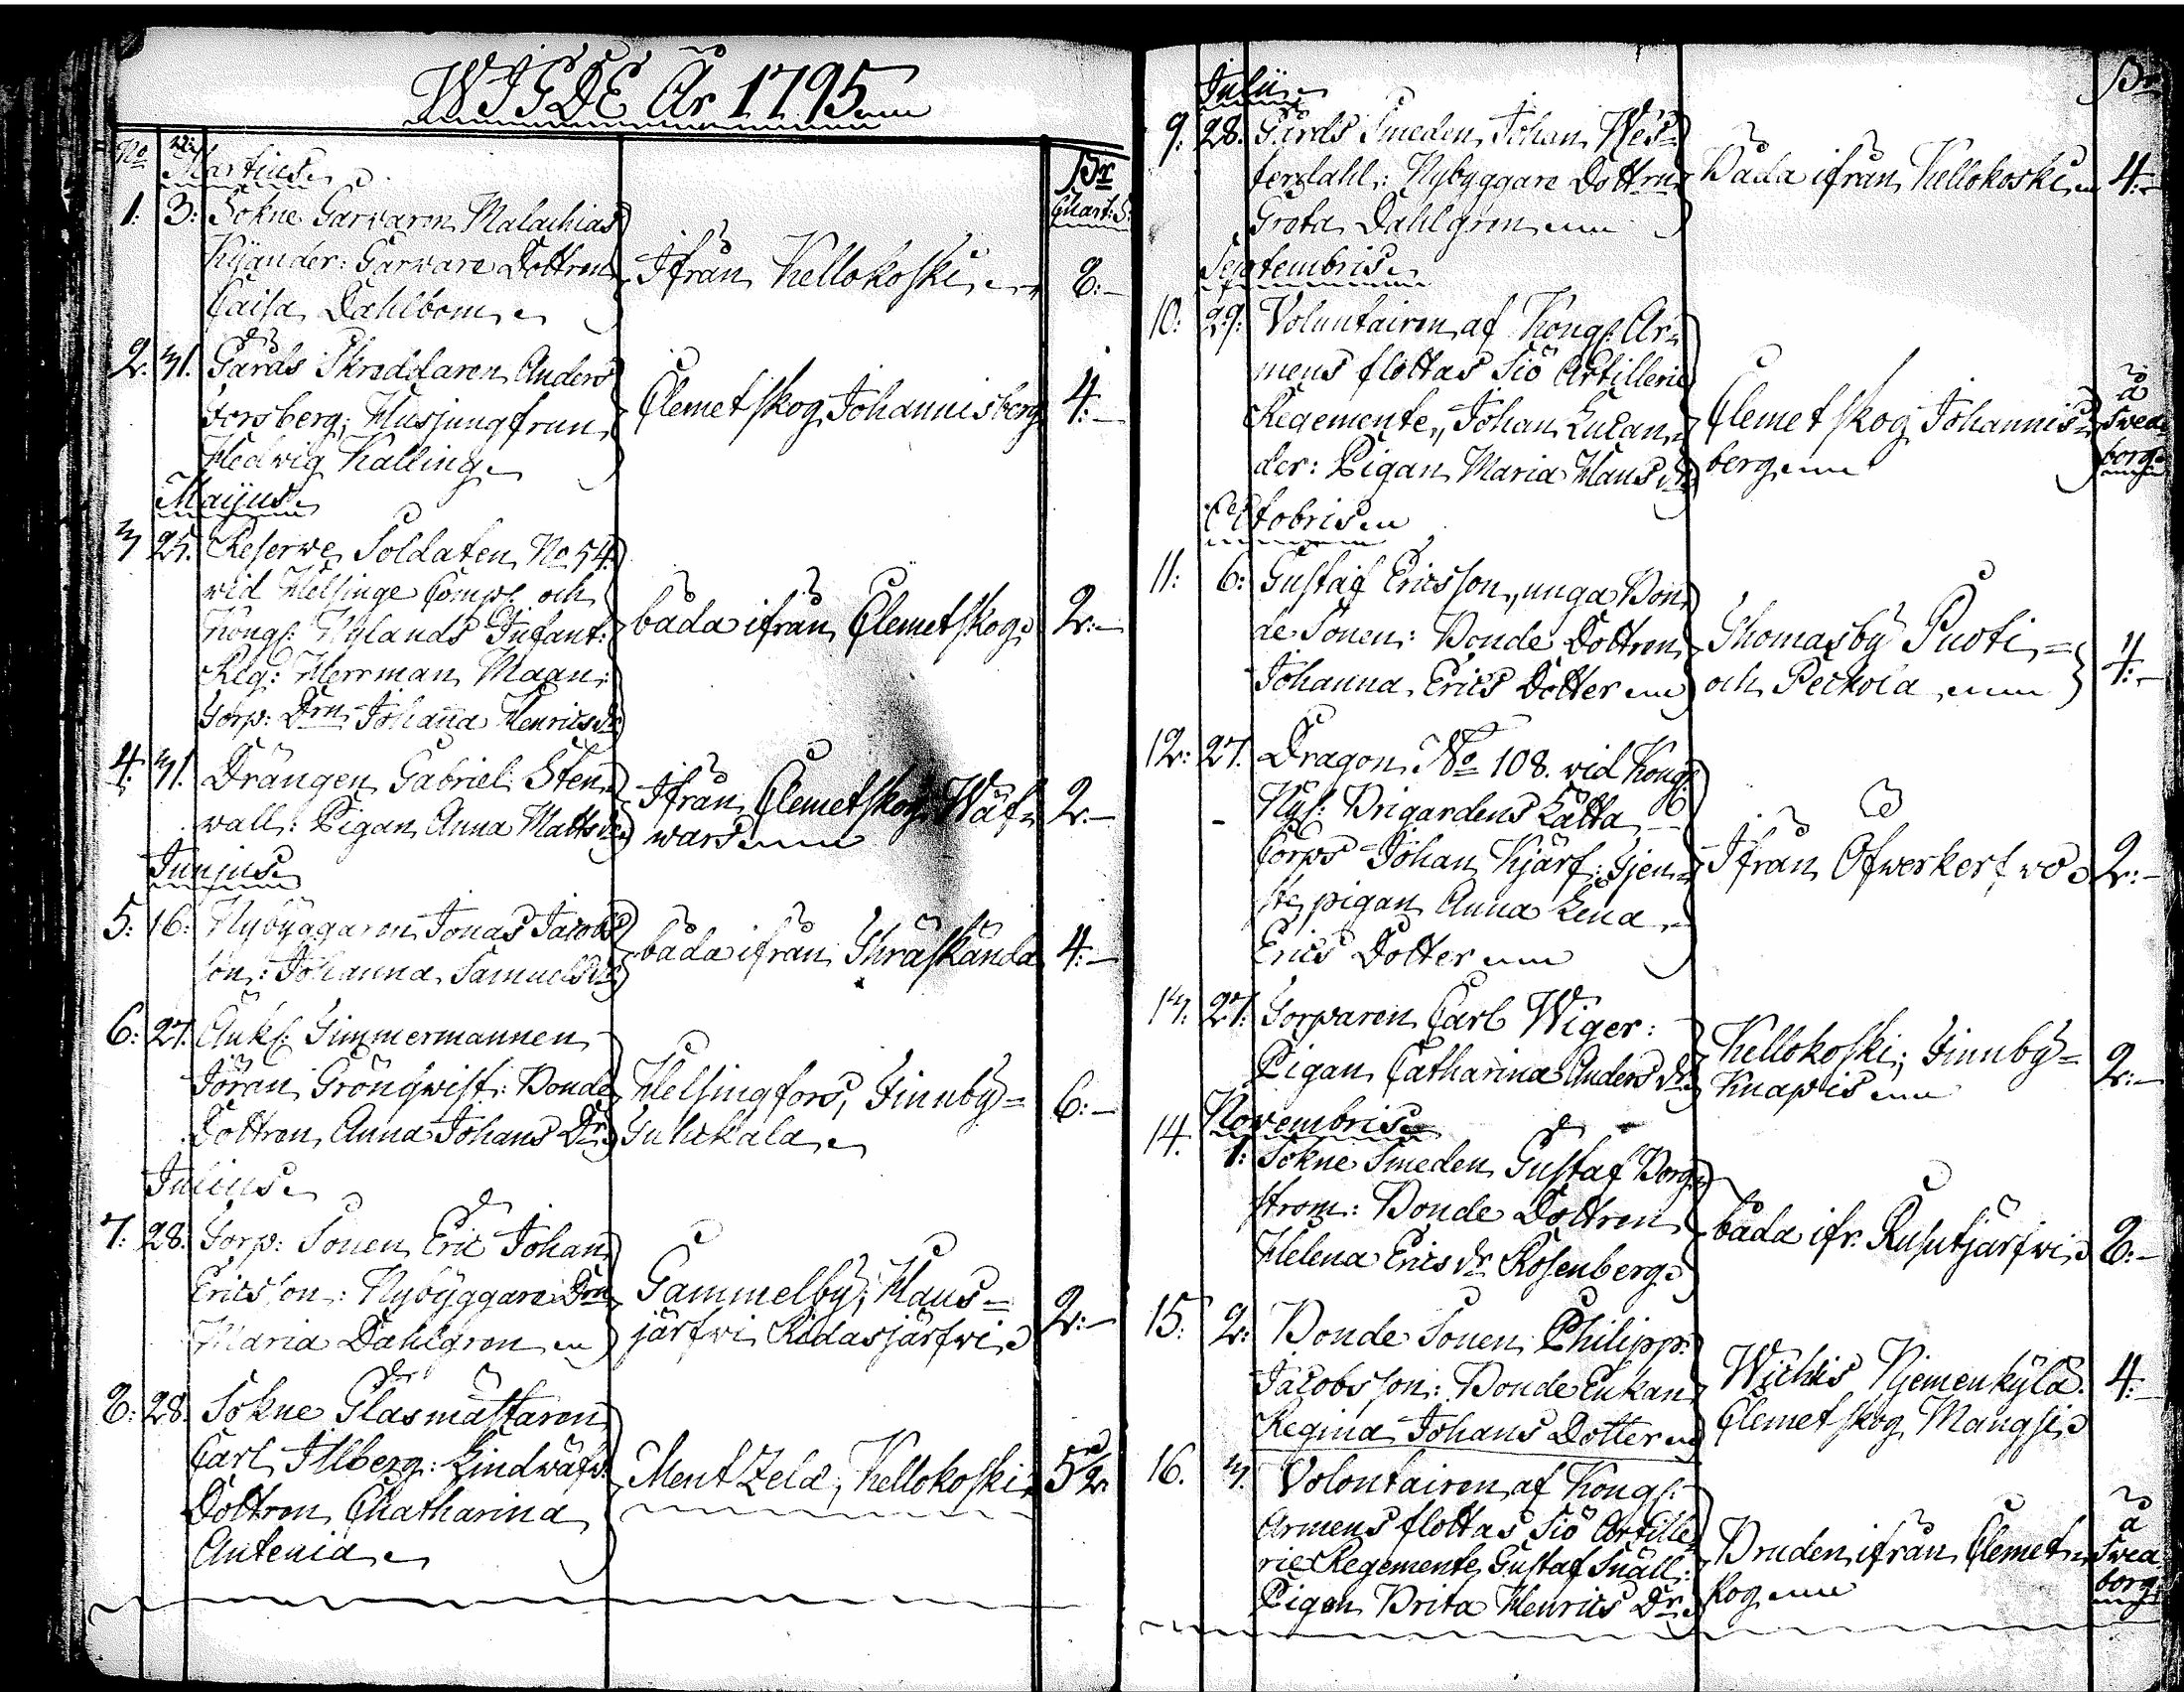 WIGDE År 1795
No
Martius
Br
Chart: S:
1: 3: Sokne Garvaren Malachias
Kijander: Garvare Dottren
Caisa Dahlbom
Ifrån Kellokoski
8:-
2. 31. Gårds Skreddaren Anders
Forsberg; Husjungfrun
Hedvig Kalling
Clemetskog Johannisberg
4:-
Maijus
3 25. Reserve Soldaten No 54
vid Helsinge Comp: och
Kongl: Nylands Infant:
Reg: Herrman Maan:
Torp: Drn Johanna Henricsdr
båda ifrån Clemetskog
2:-
4. 31. Drängen Gabriel Sten
wall: Pigan Anna Mattsdr
Ifrån Clemetskog Wäf
wars
2:-
Junius
5: 16: Nybyggaren Jonas Jacobs
son: Johanna Samuelsdr
båda ifrån Thräskända
4:-
6: 27. Ankl: Timmermannen
Jöran Grönqwist: Bonde
Dottren Anna Johans Dr
Helsingfors, Finnby=
Juhckala
6:-
Julius
7: 28. Torp: Sonen Eric Johan
Ericsson: Nybyggare Drn
Maria Dahlgren
Gammelby; Haus=
järfwi Ridasjärfwi
2:-
8: 28. Sokne Glasmästaren
Carl Illberg: Lindwäfv:
Dottren Chatharina
Antenia
Mentzelä; Kellokoski
5
Julii
Br
9: 28. Gårds Smeden Johan Wes=
terdahl: Nybyggare Dottren
Greta Dahlgren
Båda ifrån Kellokoski
4:-
Septembris
10: 29: Volontairen af Kongl: Ar=
mens flottas Siö Artillerie
Regemente, Johan Lucan
der: Pigan Maria Hansdr
Clemetskog Johannis=
berg
å
Swea
borg
Octobris
11: 6: Gustaf Ericsson, unga Bon
de Sonen: Bonde Dottren
Johanna Erics Dotter
Thomasby Puoti=
och Peckola
4:-
12: 27. Dragon No 108. vid Kongl:
Nyl: Brigardens Lätta
Corps Johan Kjärf: Tjen=
ste pigan Anna Lena
Erics Dotter
Ifrån Öfwerkerfwo
2:-
13. 27: Torparen Carl Wiger:
Pigan Catharina Andersdr
Kellokoski; Finnby=
Knapis
2:-
Novembris
14. 1: Sokne Smeden Gustaf Borg
strom: Bonde Dottren
Helena Ericsdr Rosenberg
båda ifr. Rusutjärfwi
8:-
15: 2: Bonde Sonen Philipp
Jacobsson: Bonde Enkan
Regina Johans Dotter
Wichtis Njemenkylä.
Clemetskog Mangsi
4:-
16. 3. Volontairen af Kongl:
Armens flottas Siö Artille
rie Regemente Gustaf Snäll:
Pigan Brita Henrics Dr
Bruden ifrån Clemet
skog
å
Swea
borg